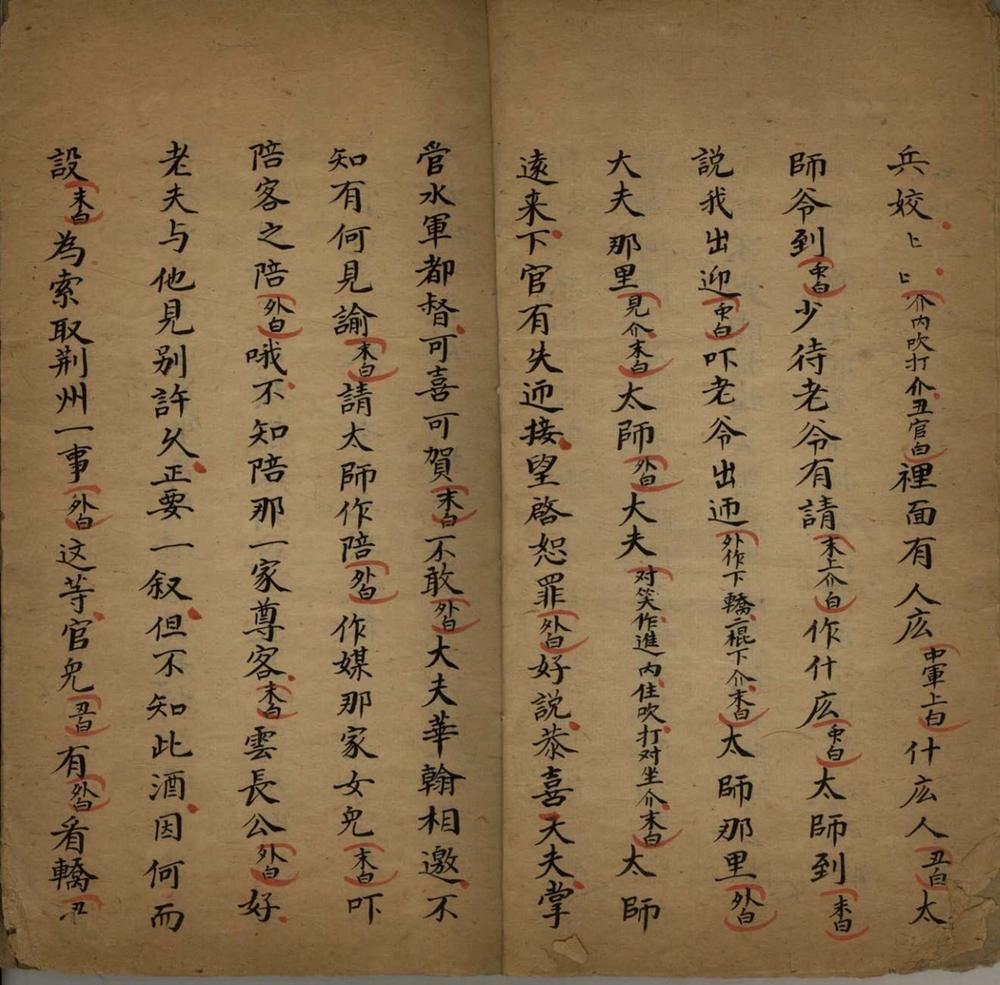 兵姣〻〻介内吹打介丑官白裡面有人庅中軍上白什庅人丑白太
師爷到中白少待老爷有請末上介白作什庅中白太師到末白
説我出迎中白吓老爷出迊外作下轎二棍下介末白太師那里外白
大夫那里見介末白太師外白大夫对笑作進内住吹打对坐介末白太師
遠来下官有失迊接望啓恕罪外白好説恭喜大夫掌
管水軍都督可喜可賀末白不敢外白大夫華翰相邀不
知有何見諭末白請太師作陪外白作媒那家女児末白吓
陪客之陪外白哦不知陪那一家尊客末白雲長公外白好
老夫与他見别許久正要一叙但不知此酒因何而
設末白為索取荆州一事外白这等官児丑白有外白看轎丑